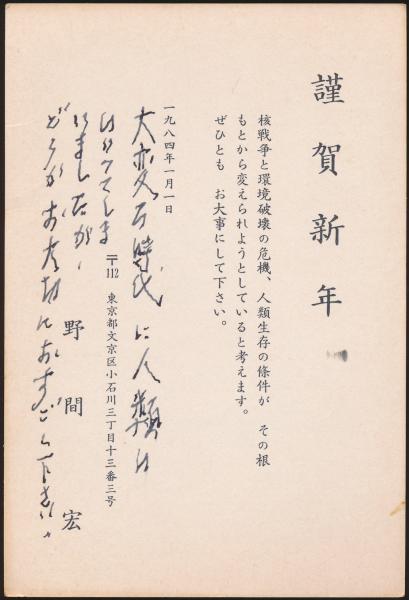 謹賀新年
核戦争と環境破壊の危機、人類生存の條件が その根
もとから変えられようとしていると考えます。
ぜひとも お大事にして下さい。
一九八四年一月一日
大変な時代に人類は
はいってしま
いましたが、
どうかお大切におすごし下さい。
〒112 東京都文京区小石川三丁目十三番三号
野間 宏